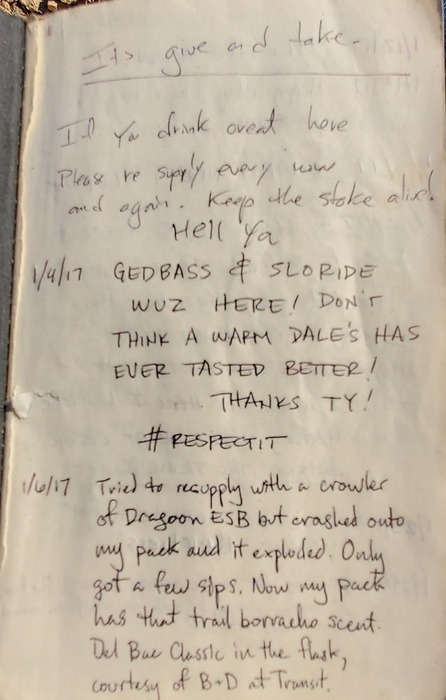 Its give and take.
If Ya drink or eat here
Please re supply every now
and again. Keep the stoke alive!
Hell Ya
1/4/17 GEDBASS & SLORIDE
WUZ HERE! DON'T
THINK A WARM DALE'S HAS
EVER TASTED BETTER!
THANKS TY!
#RESPECTIT
1/6/17 Tried to resupply with a crowler
of Dragoon ESB but crashed onto
my pack and it exploded. Only
got a few sips. Now my pack
has that trail borracho scent.
Del Bac Classic in the flask,
courtesy of B+D at Transit.